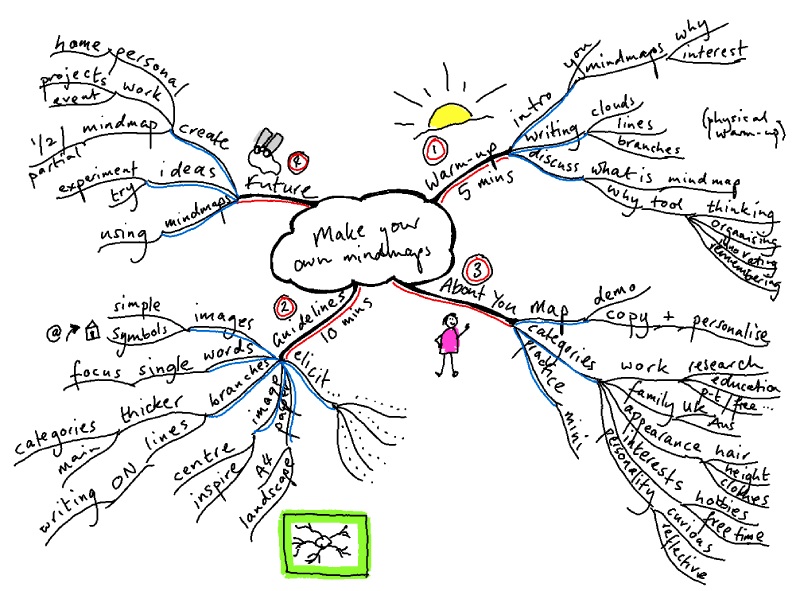 Make your
own mindmaps
1
Warm-up
5 mins
intro
you
mindmaps
why
interest
writing
clouds
lines
branches
(physical
warm-up)
discuss
what is mindmap
why tool
thinking
organising
innovating
remembering
3
About You
Map
demo
copy + personalise
categories
work
research
education
p-t/free...
family
UK
Aus
appearance
hair
height
clothes
interests
hobbies
free time
personality
curious
reflective
practice
mini
2
Guidelines
10 mins
images
simple
symbols
@
words
single
focus
branches
thicker
categories
main
lines
ON
writing
image
centre
inspire
paper
A4
landscape
elicit
4
Future
mindmaps
create
personal
home
work
projects
event
mindmap
1/2/
partial
ideas
experiment
try
using